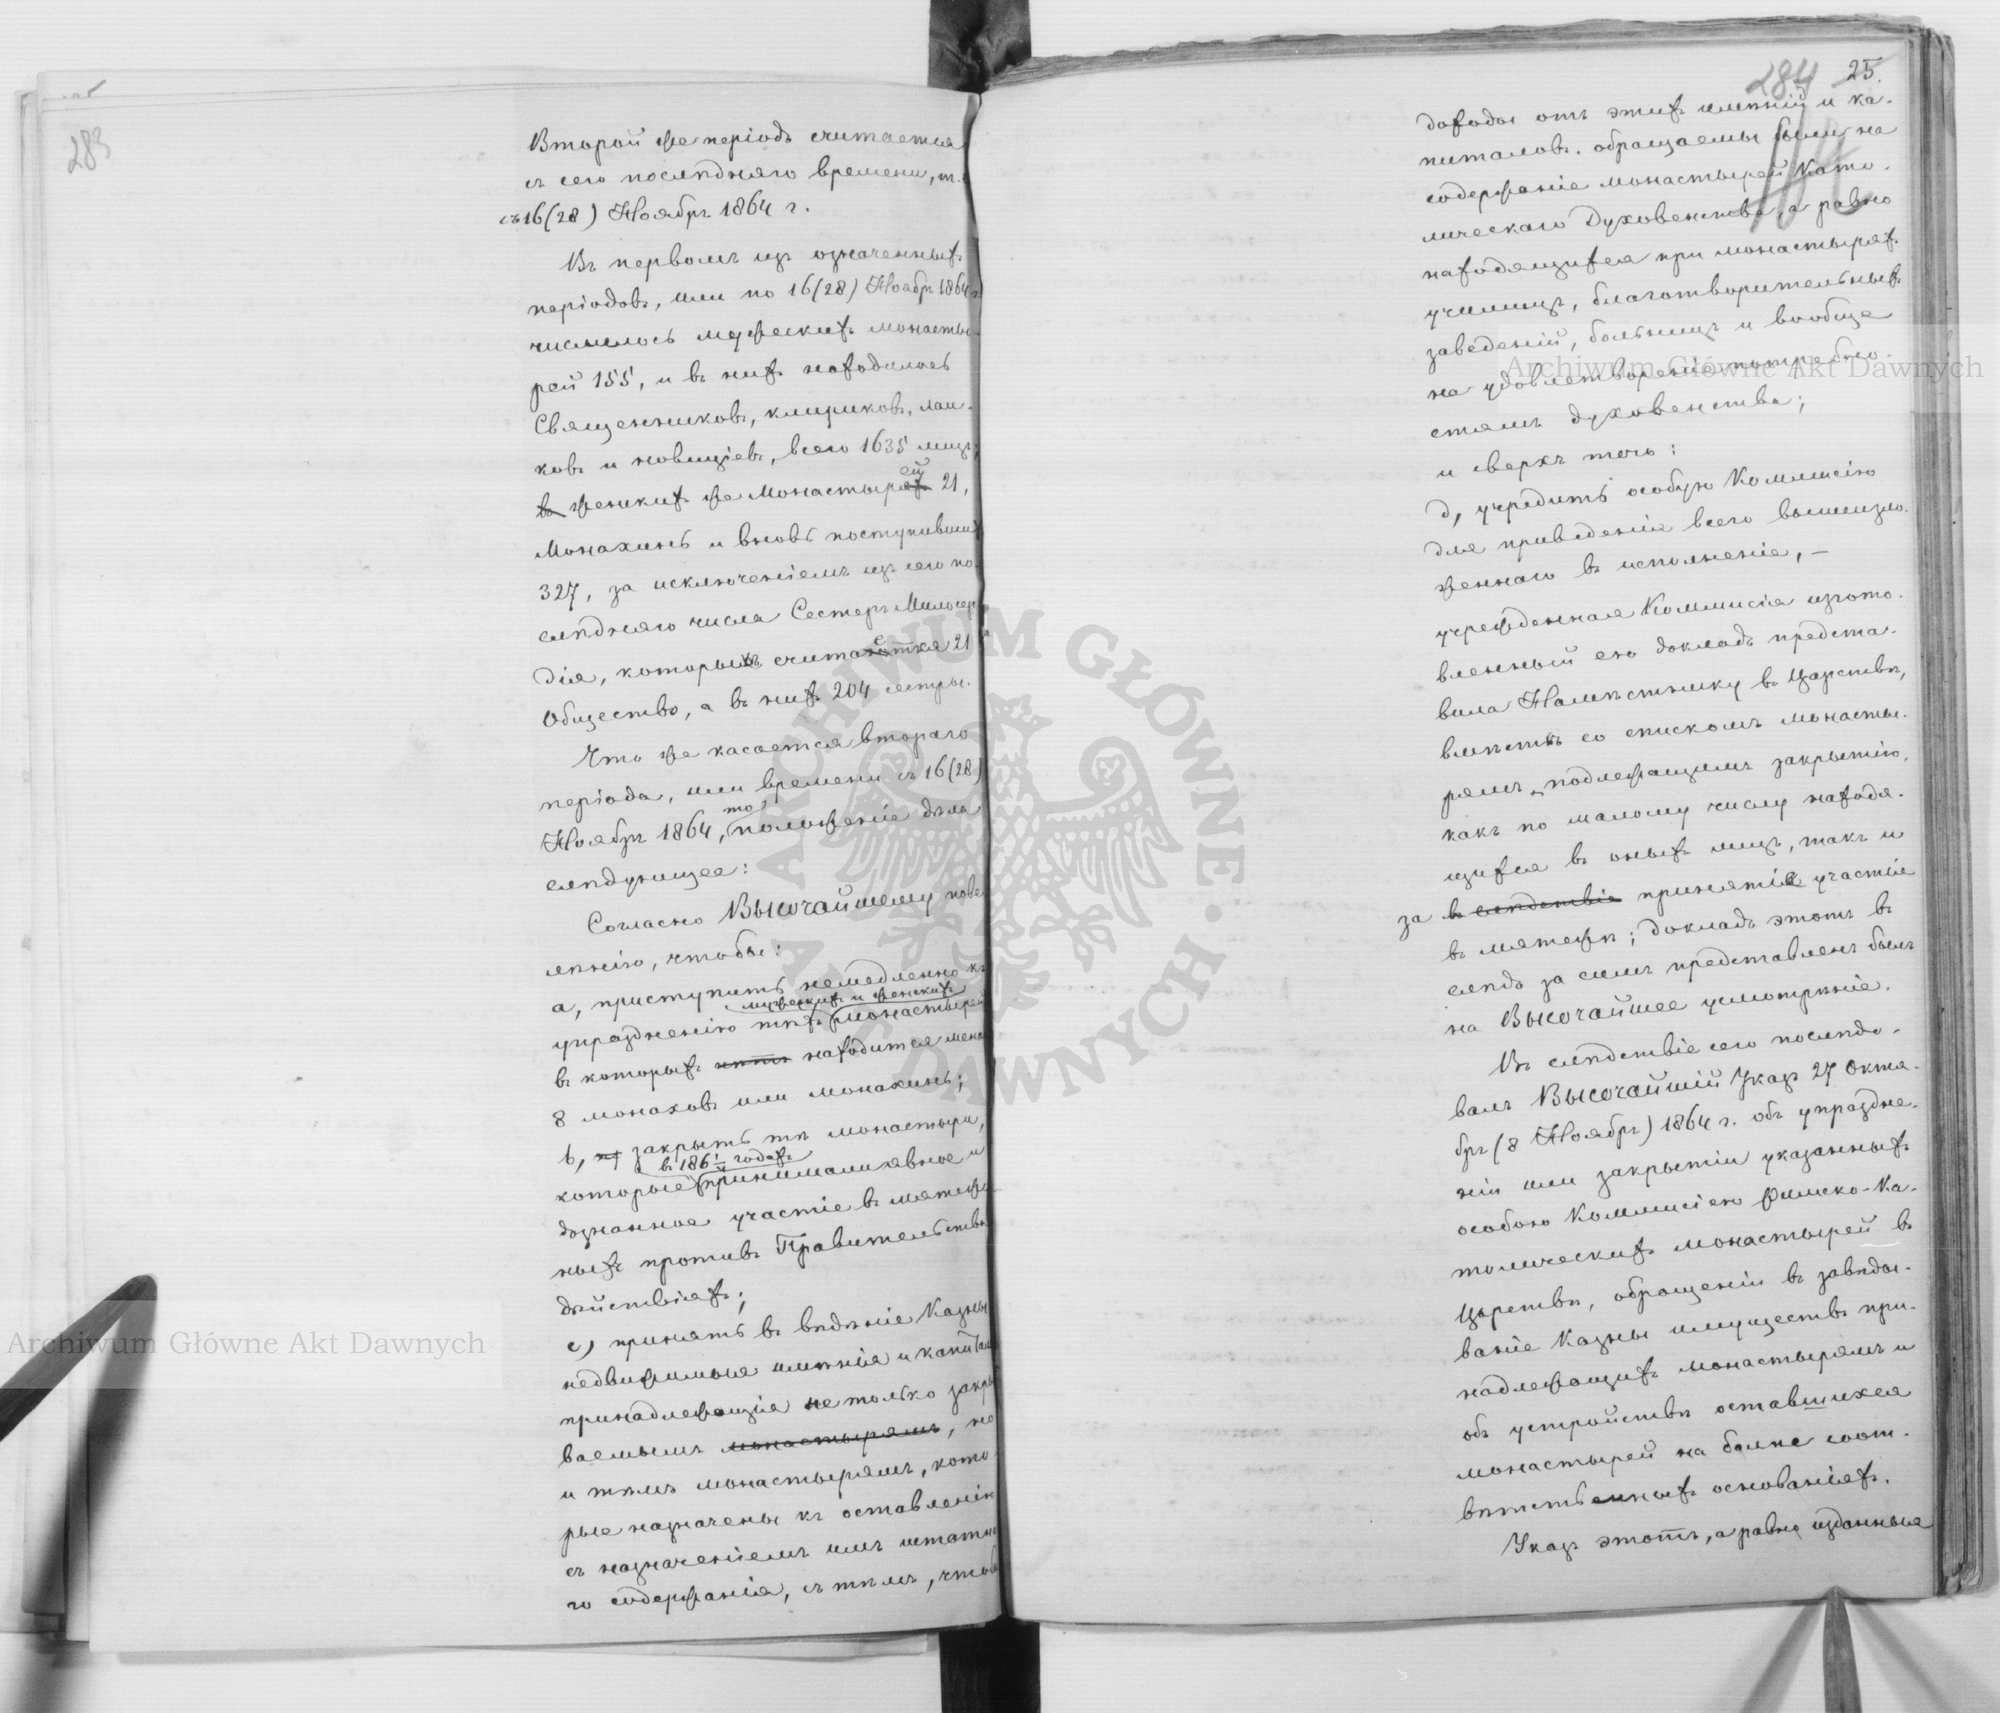 283
Второй же періодъ считается
съ сего послѣдняго времени, т.
съ 16 (28) Ноября 1864 г.
Въ первомъ изъ означенныхъ
періодовъ, или по 16 (28) Ноября 1864 г.
числилось мужескихъ монасты-
рей 155, и въ нихъ находилось
Священниковъ, клириковъ, лаи-
ковъ и новиціевъ, всего 1635 лицъ;
въ женскихъ же монастырей 21,
Монахинь и вновь поступившихъ
327, за исключеніемъ изъ сего по-
слѣдняго числа Сестеръ Милосер-
дія, которыхъ считается 21
Общество, а въ нихъ 204 сестры.
Что же касается втораго
періода, или времени съ 16 (28)
Ноября 1864, то положеніе дѣла
слѣдующее:
Согласно Высочайшему пове-
лѣнію, чтобы:
а, приступить немедленно къ
мужескихъ и женскихъ
упраздненію тѣхъ монастырей
въ которыхъ нѣтъ находится менѣе
8 монаховъ или монахинь;
b, закрыть тѣ монастыри,
въ 186 годахъ
которые принимали явное и
дознанное участіе въ мятеж-
ныхъ противъ Правительства
дѣйствіяхъ;
с) принять въ вѣдѣніе Казны
недвижимыя имѣнія и капитал
принадлежащія не только закры-
ваемымъ монастырямъ, но
и тѣмъ монастырямъ, кото-
рые назначены къ оставленію
съ назначеніемъ имъ штатна
го содержанія, съ тѣмъ, чтобы
284 25.
доходы отъ этихъ имѣній и ка-
питаловъ обращаемы были на
содержаніе монастырей Като-
лическаго Духовенства, а равно
находящихся при монастыряхъ
училищъ, благотворительныхъ
заведеній, больницъ и вообще
на удовлетвореніе потребно-
стямъ духовенства;
и сверхъ того:
d, учредить особую Коммисію
для приведенія всего вышеизло-
женнаго въ исполненіе, —
учрежденная Коммисія изгото-
вленный ею докладъ предста-
вила Намѣстнику въ Царствѣ,
вмѣстѣ со спискомъ монасты-
рямъ, подлежащимъ закрытію,
какъ по малому числу находя-
щихся въ оныхъ лицъ, такъ и
за въ слѣдствіе принятіе участіе
въ мятежѣ; докладъ этотъ въ
слѣдъ за симъ представленъ былъ
на Высочайшее усмотрѣніе.
Въ слѣдствіе сего послѣдо-
валъ Высочайшій Указъ 27 Октя-
бря (8 Ноября) 1864 г. объ упраздне-
ніи или закрытіи указанныхъ
особою Коммисіею Римско-Ка-
толическихъ монастырей въ
Царствѣ, обращеніи въ завѣды-
ваніе Казны имуществъ при-
надлежащихъ монастырямъ и
объ устройствѣ оставшихся
монастырей на болѣе соот-
вѣтственныхъ основаніяхъ.
Указъ этотъ, а равно изданныя
Archiwum Główne Akt Dawnych
Archiwum Główne Akt Dawnych
ARCHIWUM GŁÓWNE AKT DAWNYCH